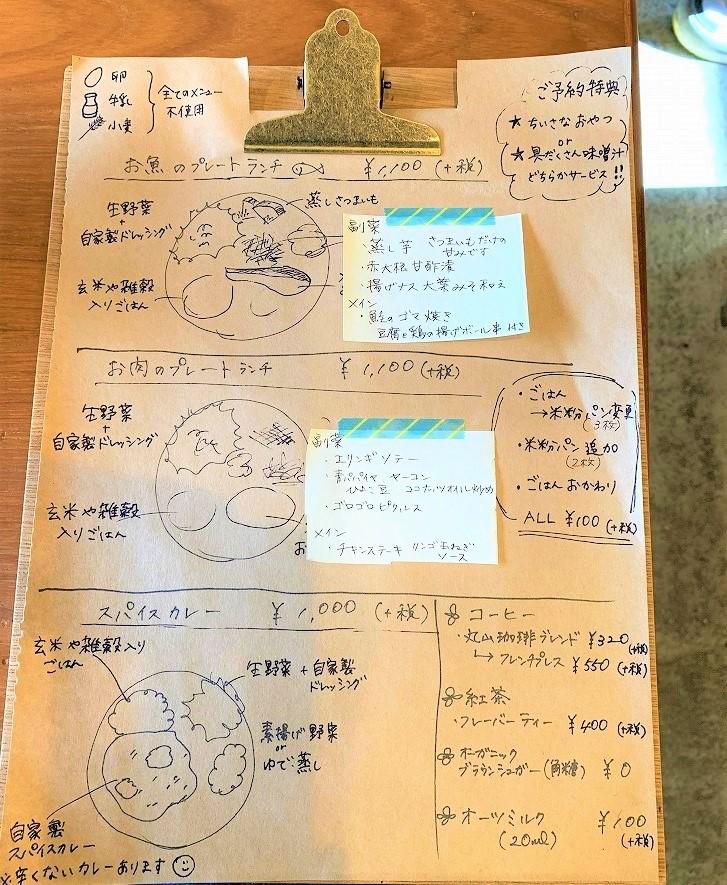 卵
牛乳
小麦
全てのメニュー
不使用
ご予約特典
★ ちいさな おやつ
or
★ 具だくさん味噌汁
どちらかサービス!!
お魚のプレートランチ ¥1,100 (+税)
生野菜
+
自家製ドレッシング
蒸しさつまいも
玄米や雑穀
入りごはん
副菜
・蒸し芋 さつまいもだけの
甘みです
・赤大根甘酢漬
・揚げナス大葉みそ和え
メイン
・鮭のゴマ焼き
豆腐と鶏の揚げボール串付き
お肉のプレートランチ ¥1,100 (+税)
生野菜
+
自家製ドレッシング
玄米や雑穀
入りごはん
副菜
・エリンギソテー
・青パパイヤ ヤーコン
ひよこ豆 ココナッツオイル炒め
・ゴロゴロピクルス
メイン
・チキンステーキ リンゴ玉ねぎ
ソース
お
・ごはん
→米粉パン変更
(3枚)
・米粉パン追加
(2枚)
・ごはんおかわり
ALL ¥100 (+税)
スパイスカレー ¥1,000 (+税)
玄米や雑穀入り
ごはん
生野菜+自家製
ドレッシング
素揚げ野菜
or
ゆで・蒸し
自家製
スパイスカレー
※辛くないカレーあります
コーヒー
・丸山珈琲ブレンド ¥320 (+税)
↳ フレンチプレス ¥550 (+税)
紅茶
・フレーバーティー ¥400 (+税)
オーガニック
ブラウンシュガー(角糖) ¥0
オーツミルク ¥100
(20ml) (+税)